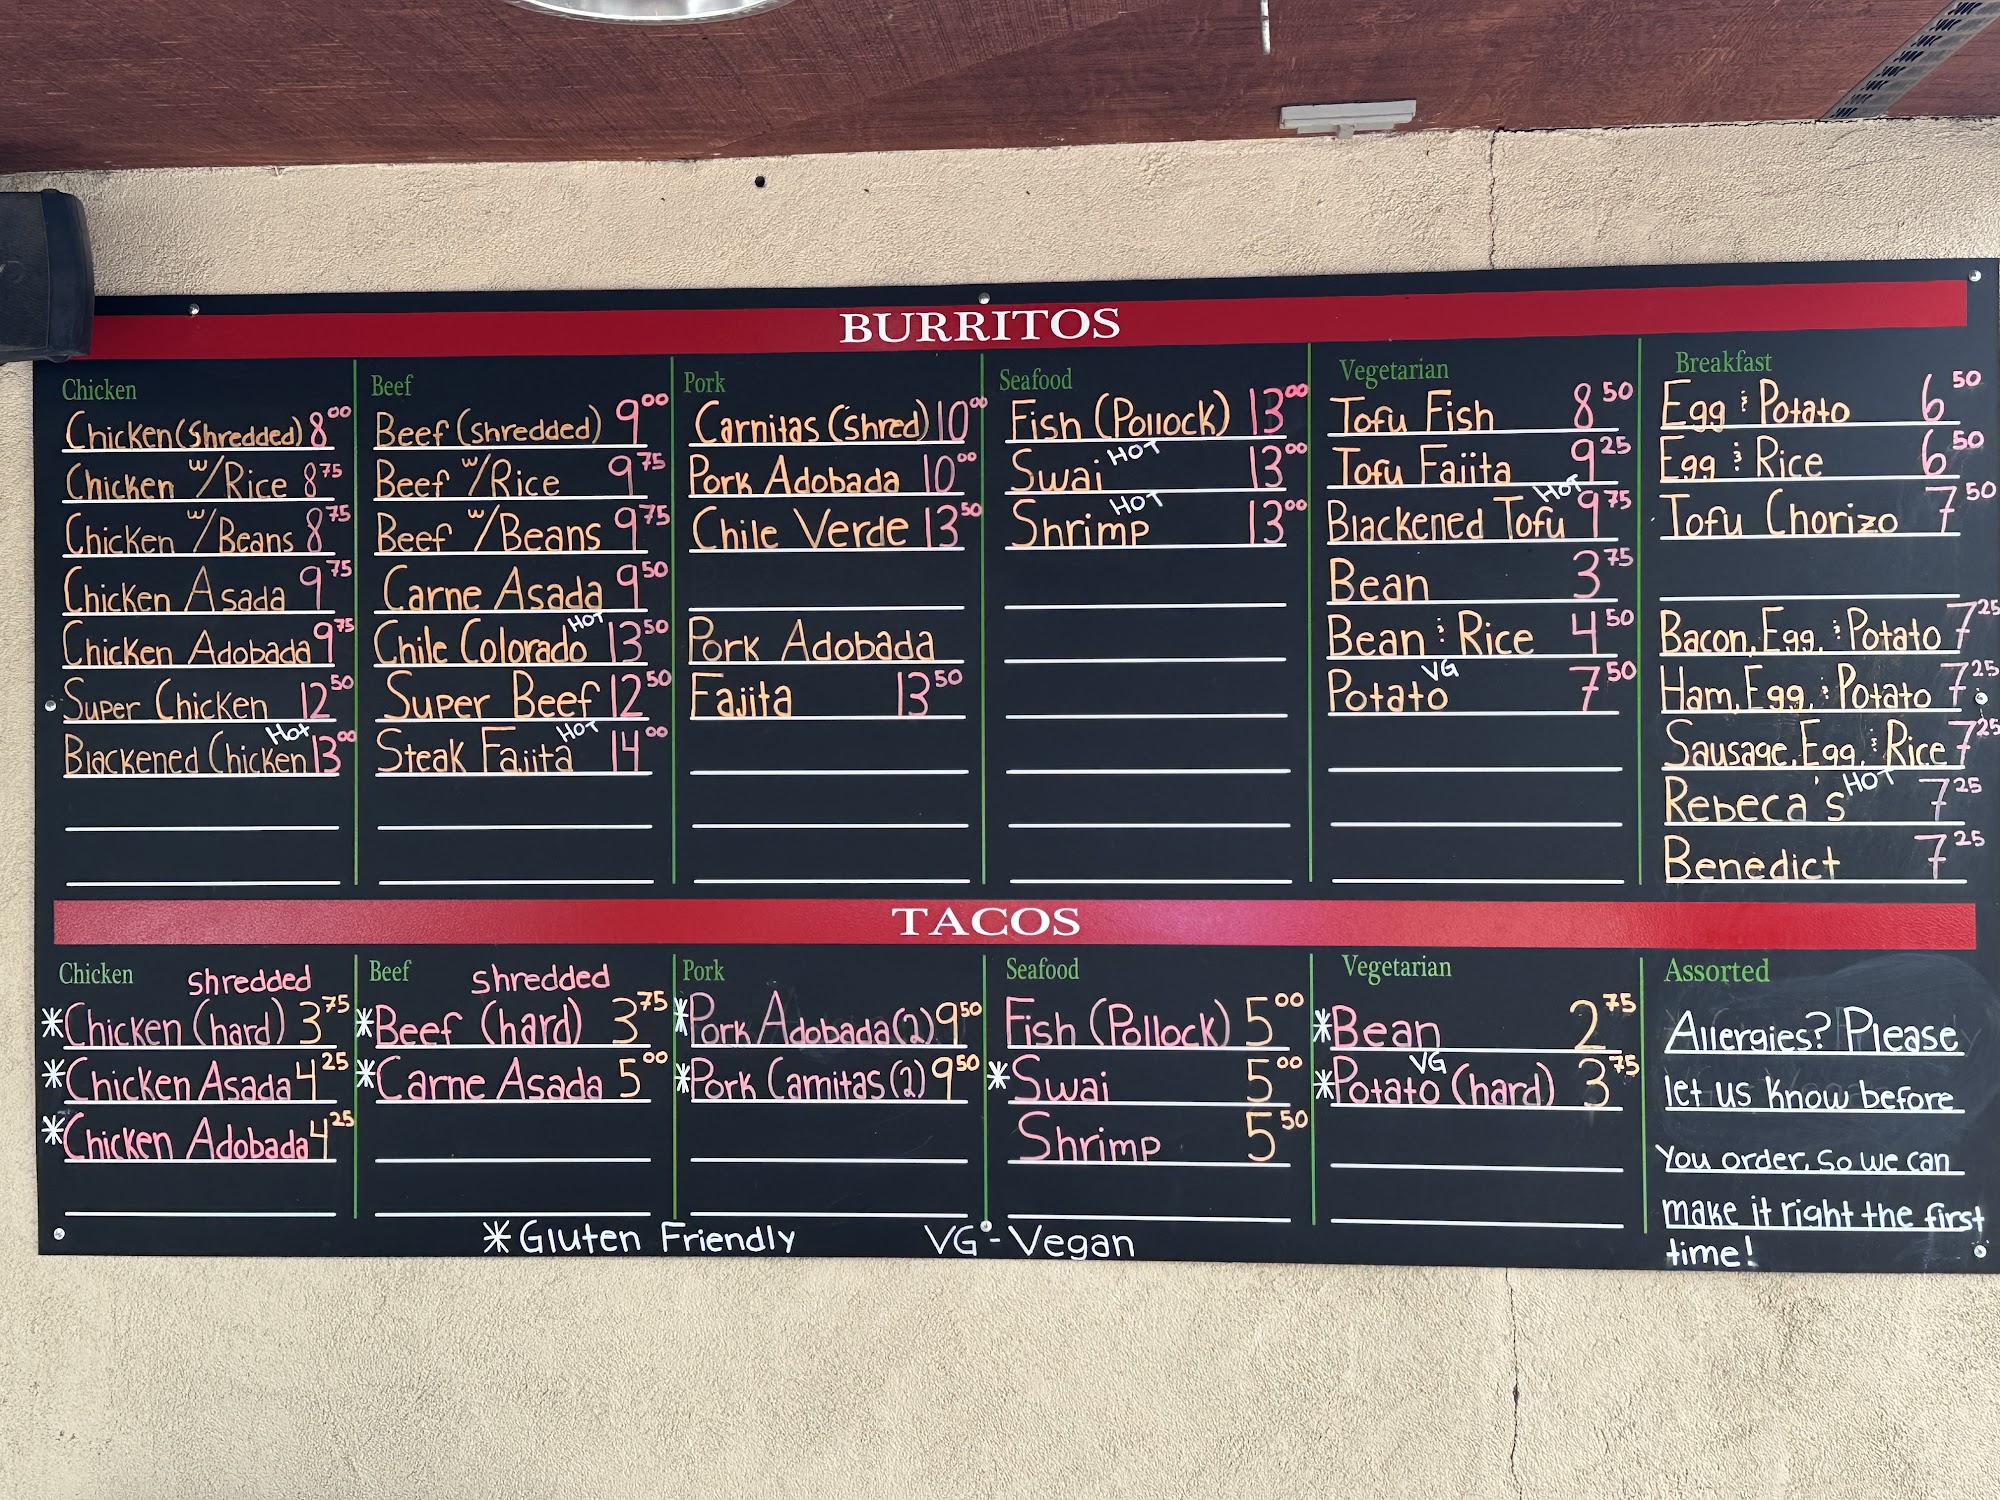 BURRITOS
Chicken
Chicken (Shredded) 8.00
Chicken w/Rice 8.75
Chicken w/Beans 8.75
Chicken Asada 9.75
Chicken Adobada 9.75
Super Chicken 12.50
Blackened Chicken Hot 13.00
Beef
Beef (Shredded) 9.00
Beef w/Rice 9.75
Beef w/Beans 9.75
Carne Asada 9.50
Chile Colorado HOT 13.50
Super Beef 12.50
Steak Fajita HOT 14.00
Pork
Carnitas (Shred) 10.00
Pork Adobada 10.00
Chile Verde 13.50
Pork Adobada
Fajita 13.50
Seafood
Fish (Pollock) 13.00
Swai HOT 13.00
Shrimp HOT 13.00
Vegetarian
Tofu Fish 8.50
Tofu Fajita 9.25
Blackened Tofu HOT 9.75
Bean 3.75
Bean & Rice 4.50
Potato VG 7.50
Breakfast
Egg & Potato 6.50
Egg & Rice 6.50
Tofu Chorizo 7.50
Bacon, Egg, & Potato 7.25
Ham, Egg, & Potato 7.25
Sausage, Egg, & Rice 7.25
Rebeca's HOT 7.25
Benedict 7.25
TACOS
Chicken
Shredded
*Chicken (hard) 3.75
*Chicken Asada 4.25
*Chicken Adobada 4.25
Beef
Shredded
*Beef (hard) 3.75
*Carne Asada 5.00
Pork
*Pork Adobada (2) 9.50
*Pork Carnitas (2) 9.50
Seafood
Fish (Pollock) 5.00
*Swai 5.00
Shrimp 5.50
Vegetarian
*Bean 2.75
*Potato VG (hard) 3.75
Assorted
Allergies? Please
let us know before
you order, so we can
make it right the first
time!
*Gluten Friendly VG - Vegan